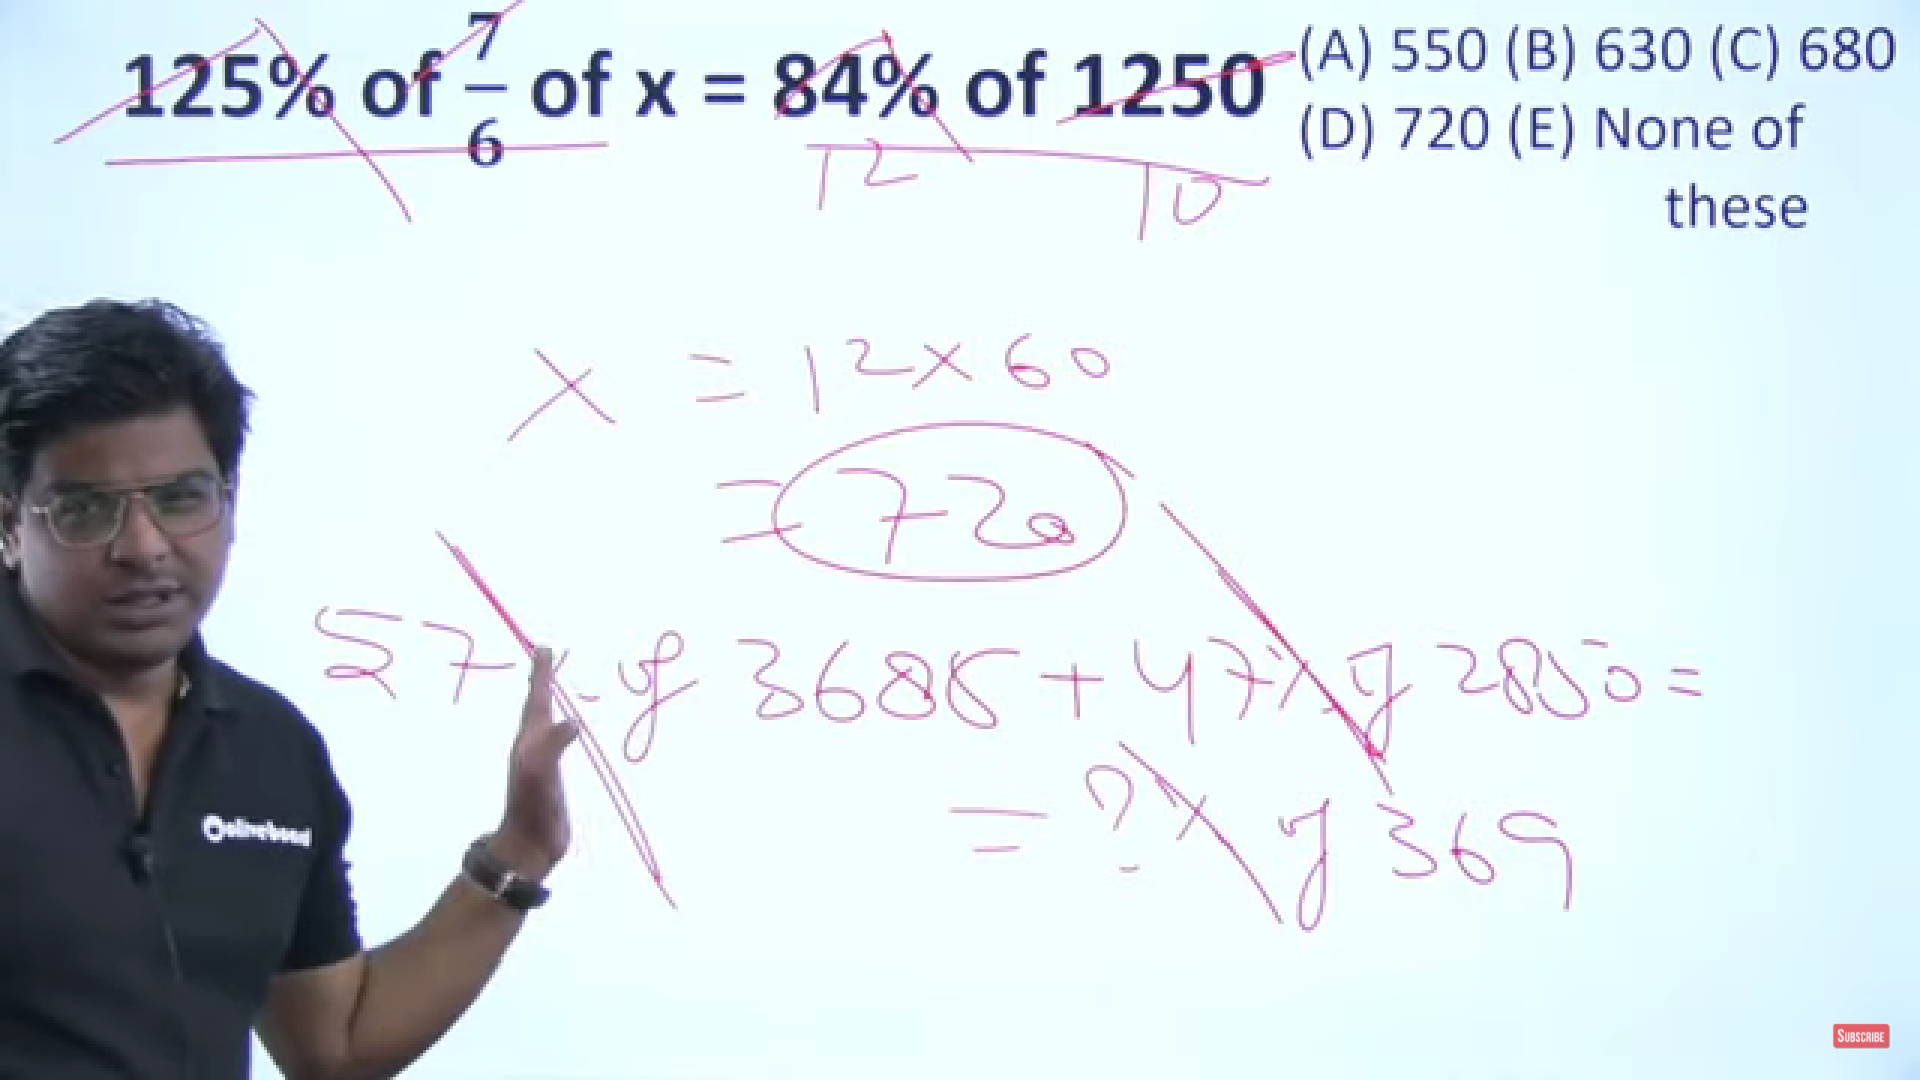 125% of 7/6 of x = 84% of 1250
(A) 550 (B) 630 (C) 680
(D) 720 (E) None of
these
12
10
x = 12 x 60
= 720
57% of 3685 + 47% of 2850 =
= ?% of 369
oliveboard
SUBSCRIBE